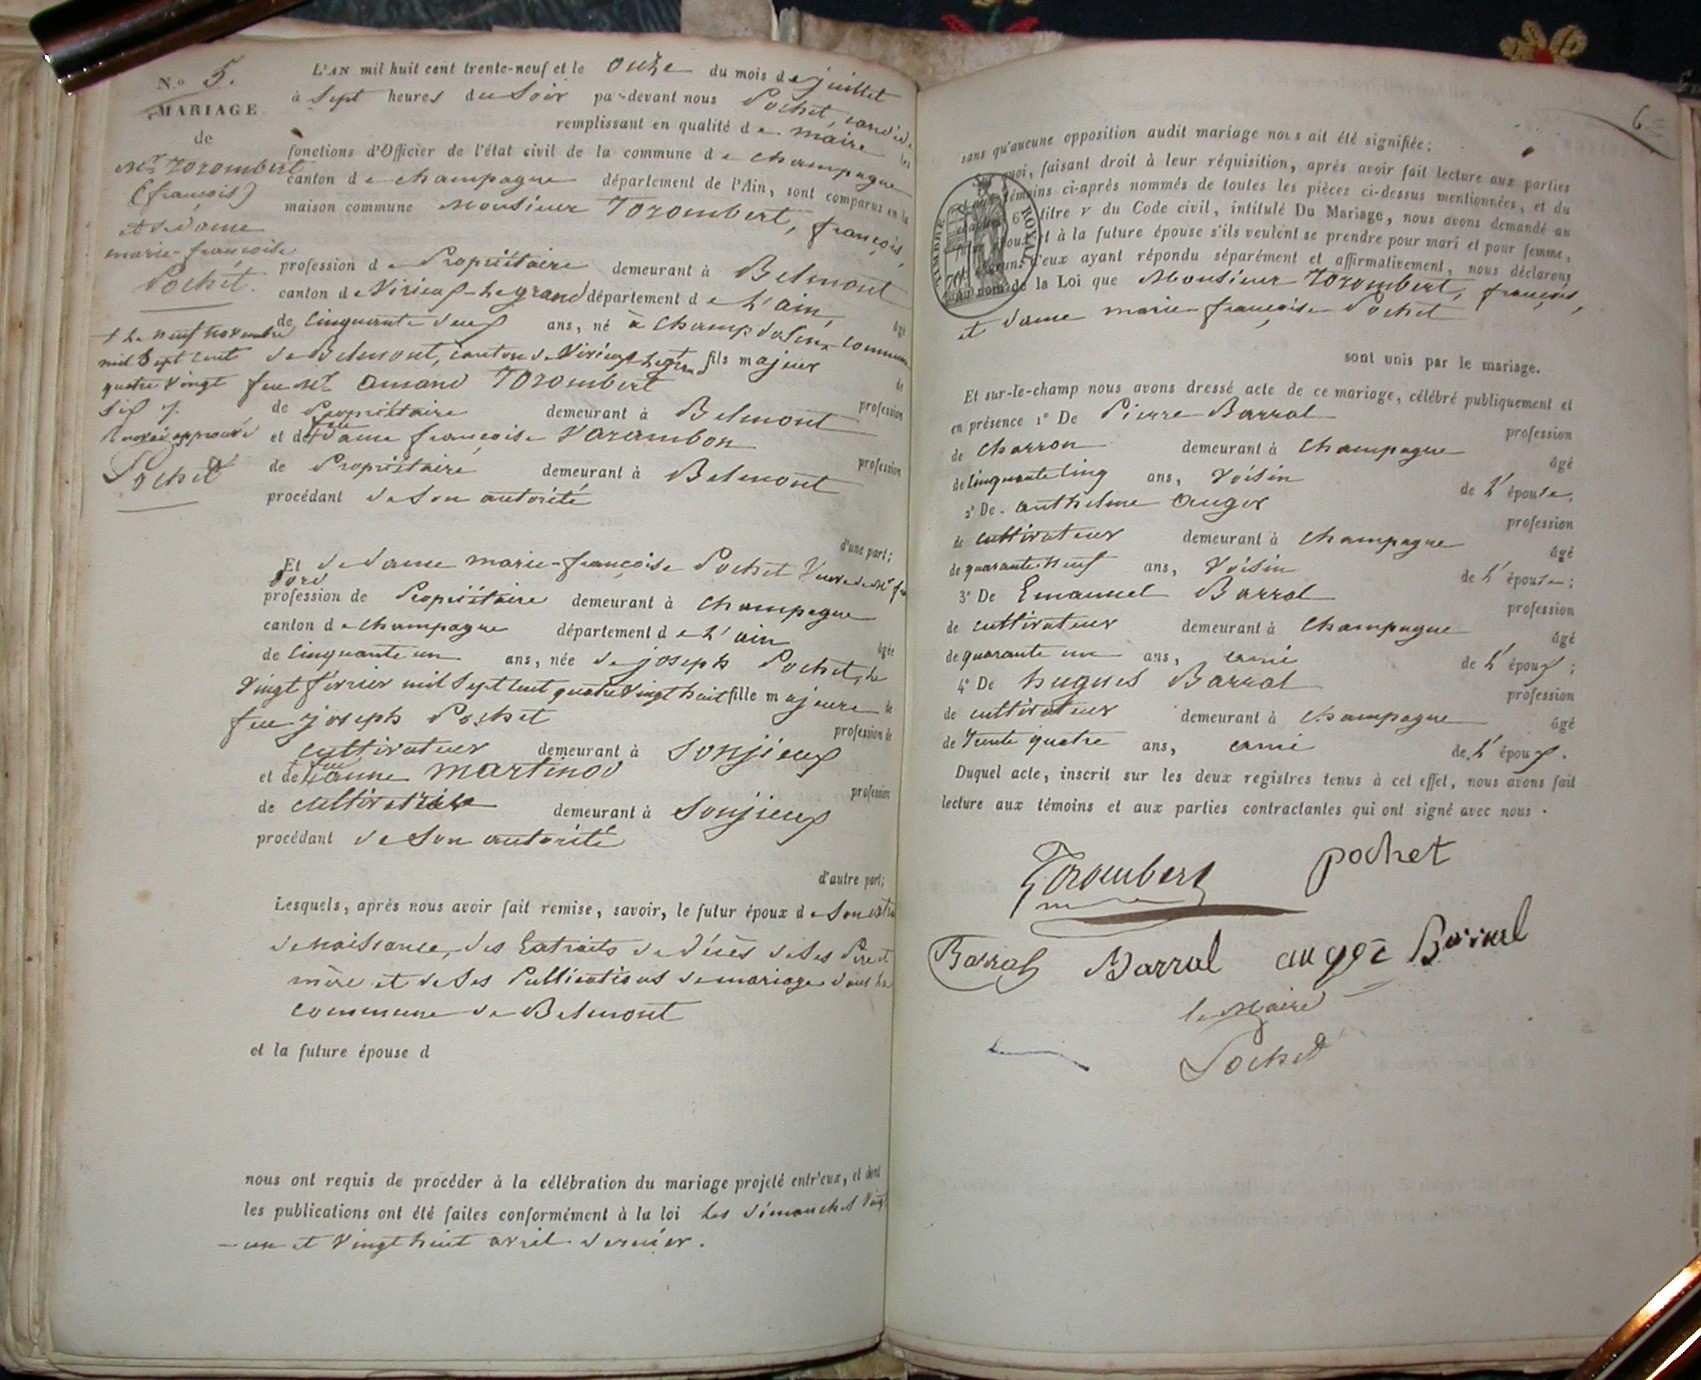 N.º 5.
MARIAGE
de
Mr. Torombert
(françois)
et dame
marie-françoise
Pochet.
+ Le neuf novembre
mil sept cent
quatre vingt
six /.
renvoi approuvé
Pochet
L'AN mil huit cent trente-neuf et le onze du mois de juillet
à Sept heures du Soir par-devant nous Pochet,
remplissant en qualité de maire les
fonctions d'Officier de l'état civil de la commune de champagne
canton de champagne département de l'Ain, sont comparus en la
maison commune Monsieur Torombert, françois,
profession de Propriétaire demeurant à Belmont
canton de Virieux-Le grand département de L'ain, âgé
de Cinquante deux ans, né à Champdossin commune
de Belmont, canton de Virieux Le grand fils majeur de
feu Mr. amand Torombert profession
de Propriétaire demeurant à Belmont
et de feue Dame françoise Varambon profession
de Propriétaire demeurant à Belmont
procédant de Son autorité
d'une part;
Et de dame marie-françoise Pochet Veuve de Mr
profession de Propriétaire demeurant à Champagne
canton de champagne département de L'ain âgée
de Cinquante un ans, née de joseph Pochet, Le
Vingt février mil Sept cent quatre Vingt huit fille majeure de
feu joseph Pochet profession de
cultivateur demeurant à Sonjieux
et de feue jeanne Martinod profession
de cultivatrice demeurant à Sonjieux
procédant de Son autorité
d'autre part;
Lesquels, après nous avoir fait remise, savoir, le futur époux de Son extrait
de naissance, des Extraits de Décès de Ses Père et
mère et de Ses Publications de mariage dans la
commune de Belmont
et la future épouse d
nous ont requis de procéder à la célébration du mariage projeté entr'eux, et dont
les publications ont été faites conformément à la loi Les dimanches Vingt
-un et Vingt huit avril dernier.
6
sans qu'aucune opposition audit mariage nous ait été signifiée;
quoi, faisant droit à leur réquisition, après avoir fait lecture aux parties
témoins ci-après nommés de toutes les pièces ci-dessus mentionnées, et du
chapitre 6 titre V du Code civil, intitulé Du Mariage, nous avons demandé au
futur époux et à la future épouse s'ils veulent se prendre pour mari et pour femme,
chacun d'eux ayant répondu séparément et affirmativement, nous déclarons
au nom de la Loi que Monsieur Torombert, françois,
et dame marie-françoise Pochet
TIMBRE ROYAL
sont unis par le mariage.
Et sur-le-champ nous avons dressé acte de ce mariage, célébré publiquement et
en présence 1º De Pierre Barral profession
de Charron demeurant à Champagne âgé
de Cinquante Cinq ans, Voisin de L'épouse,
2º De anthelme auger profession
de cultivateur demeurant à champagne âgé
de quarante neuf ans, Voisin de L'épouse;
3º De Emanuel Barral profession
de cultivateur demeurant à Champagne âgé
de quarante un ans, ami de L'époux;
4º De hugues Barral profession
de cultivateur demeurant à Champagne âgé
de Trente quatre ans, ami de L'époux.
Duquel acte, inscrit sur les deux registres tenus à cet effet, nous avons fait
lecture aux témoins et aux parties contractantes qui ont signé avec nous.
Torombert pochet
Barral Barral augé Barral
le Maire
Pochet